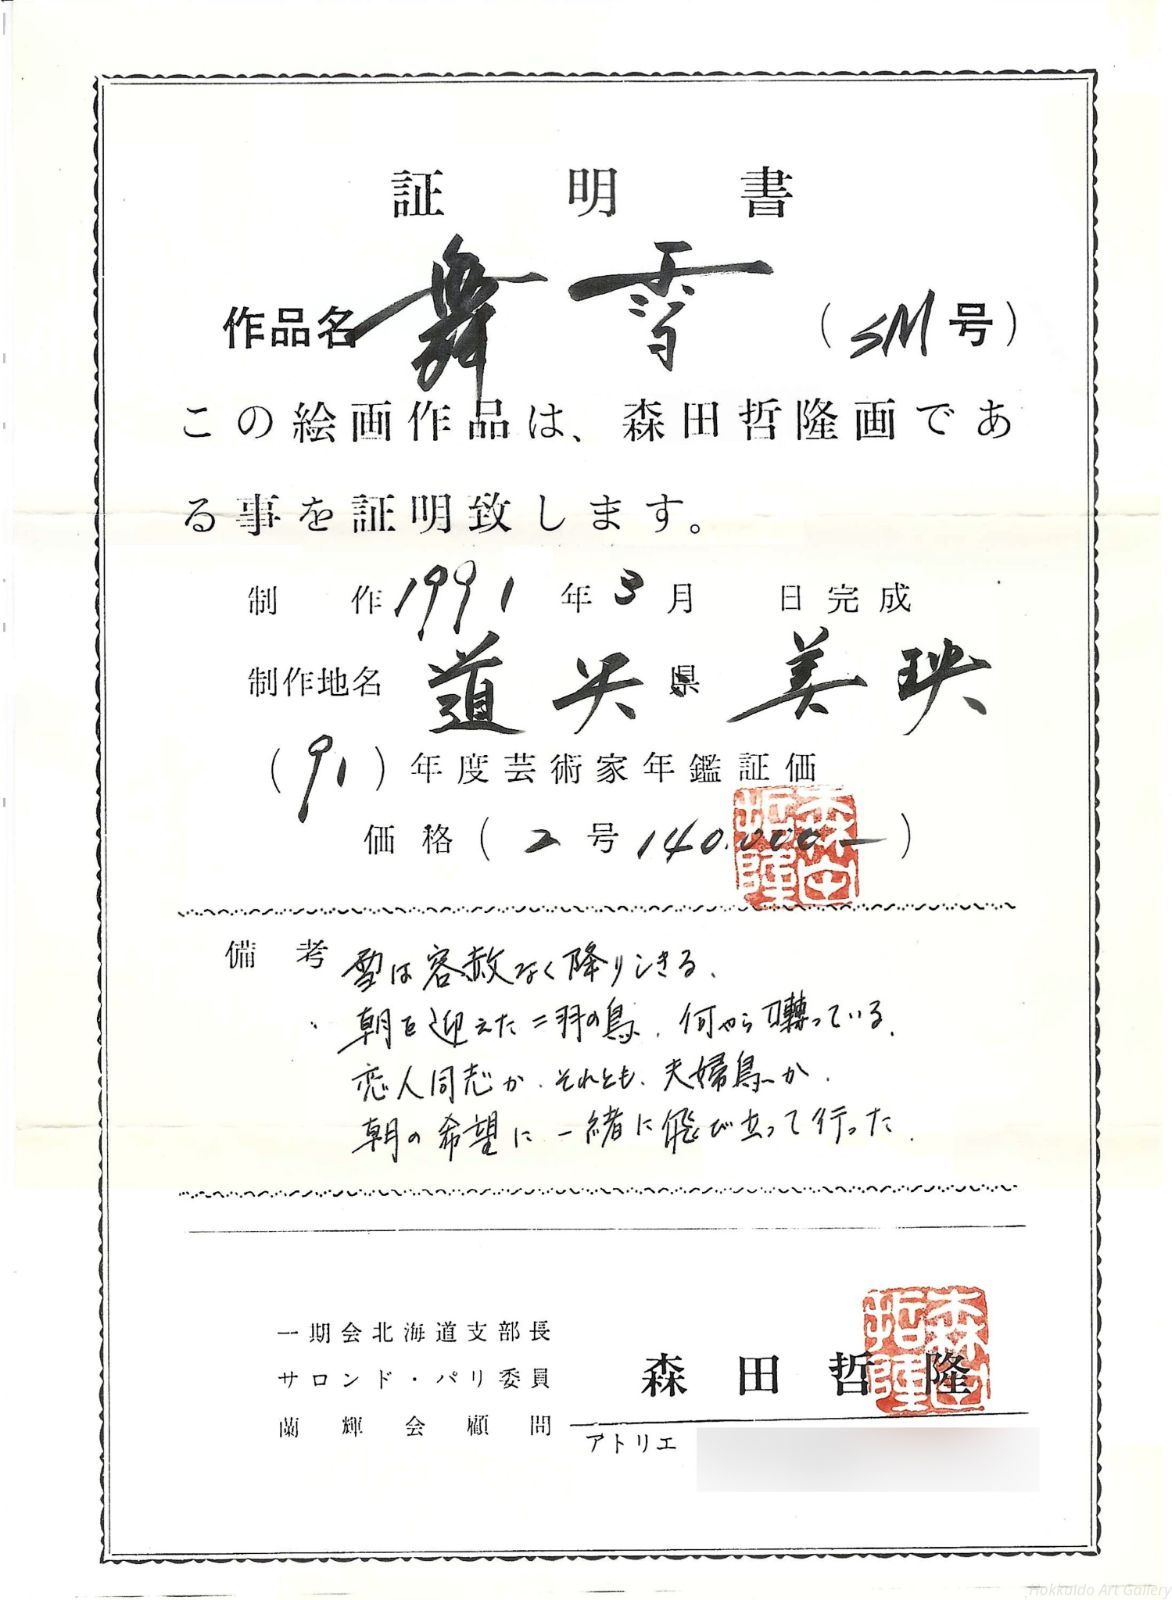 証明書
作品名 舞雪 (SM号)
この絵画作品は、森田哲隆画であ
る事を証明致します。
制作 1991年3月 日完成
制作地名 道央県 美瑛
(91)年度芸術家年鑑証価
価格(2号 140.000-)
森田哲隆
備考 雪は容赦なく降りしきる、
朝を迎えた二羽の鳥、何やら囀っている、
恋人同志か、それとも、夫婦鳥か、
朝の希望に一緒に飛び立って行った、
一期会北海道支部長
サロンド・パリ委員
蘭輝会顧問
森田哲隆
森田哲隆
アトリエ
Hokkaido Art Gallery